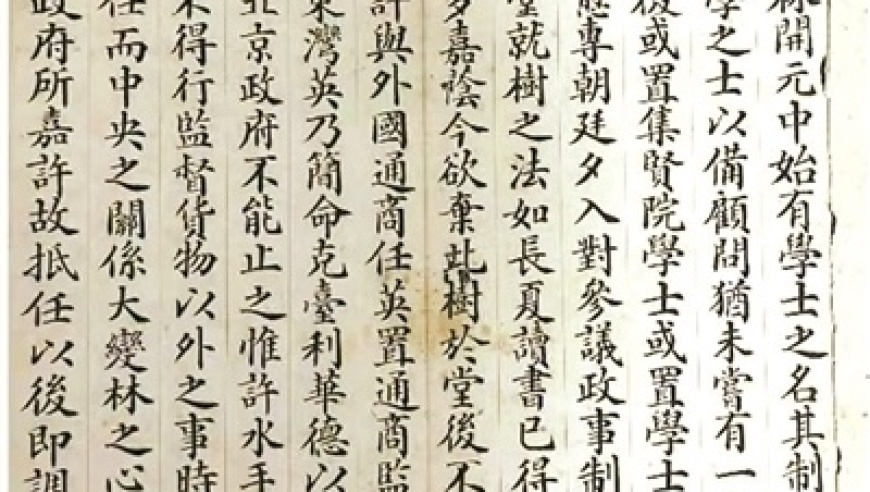 開元中始有學士之名其制
學之士以備顧問猶未嘗有一
後或置集賢院學士或置學士
專朝廷夕入對參議政事制
堂就樹之法如長夏讀書已得
多嘉蔭今欲棄此樹於堂後不
許與外國通商任英置通商監
東灣英乃簡命克臺利華德以
北京政府不能止之惟許水手
不得行監督貨物以外之事時
任而中央之關係大變林之心
政府所嘉許故抵任以後即調